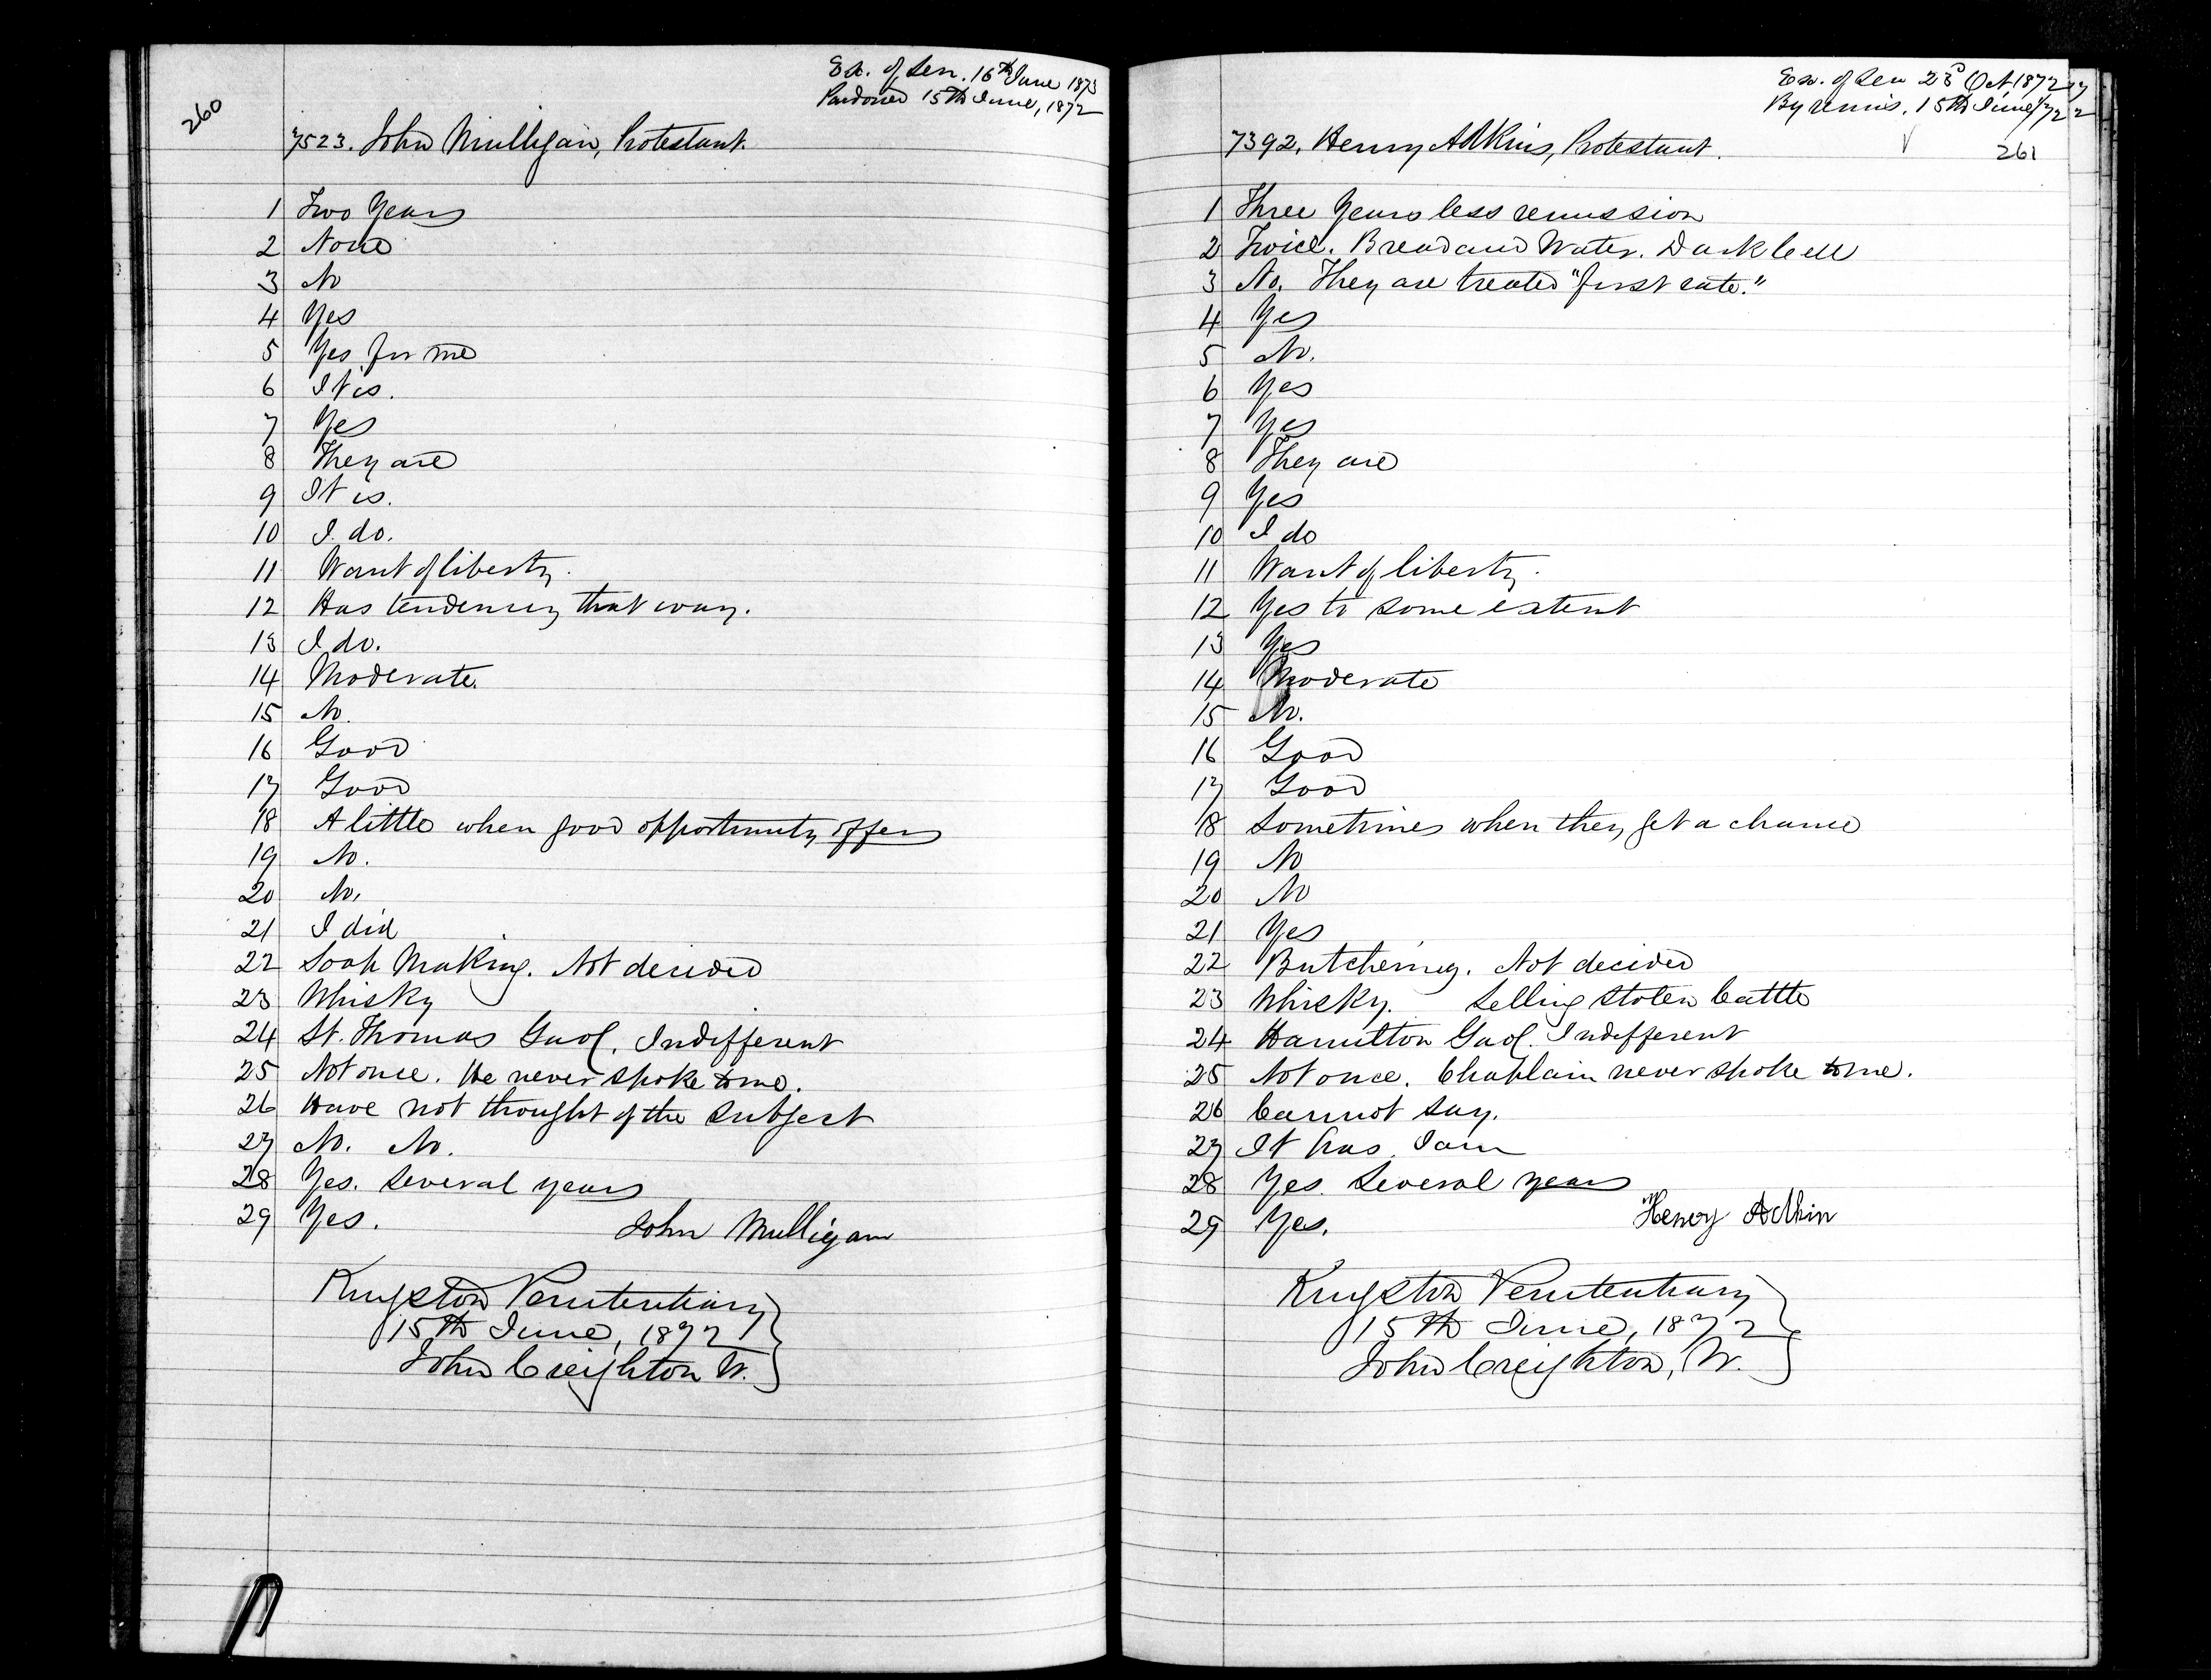 260
Ex. of Sen. 16th June 1873
Pardoned 15th June, 1872
7523. John Mulligan, Protestant.
1 Two Years
2 None
3 No
4 Yes
5 Yes for me
6 It is.
7 Yes
8 They are
9 It is.
10 I do.
11 Want of liberty.
12 Has tendency that way.
13 I do.
14 Moderate.
15 No.
16 Good
17 Good
18 A little when good opportunity offers
19 No.
20 No.
21 I did
22 Soap Making. Not decided
23 Whisky
24 St. Thomas Gaol. Indifferent
25 Not once. He never spoke to me.
26 Have not thought of the subject
27 No. No.
28 Yes. Several years
29 Yes. John Mulligan
Kingston Penitentiary
15th June, 1872
John Creighton W.
Ex. of Sen 23d Oct 1872
By remis. 15th June/72
7392, Henry Adkins, Protestant.
261
1 Three Years less remission
2 Twice. Bread and Water. Dark Cell
3 No. They are treated "first rate."
4 Yes
5 No.
6 Yes
7 Yes
8 They are
9 Yes
10 I do
11 Want of liberty.
12 Yes to some extent
13 Yes
14 Moderate
15 No.
16 Good
17 Good
18 Sometimes when they get a chance
19 No
20 No
21 Yes
22 Butchering. Not decided
23 Whisky. Selling stolen Cattle
24 Hamilton Gaol. Indifferent
25 Not once. Chaplain never spoke to me.
26 Cannot say.
27 It has. I am
28 Yes. Several years
Henry Adkin
29 Yes.
Kingston Penitentiary
15th June, 1872
John Creighton, W.